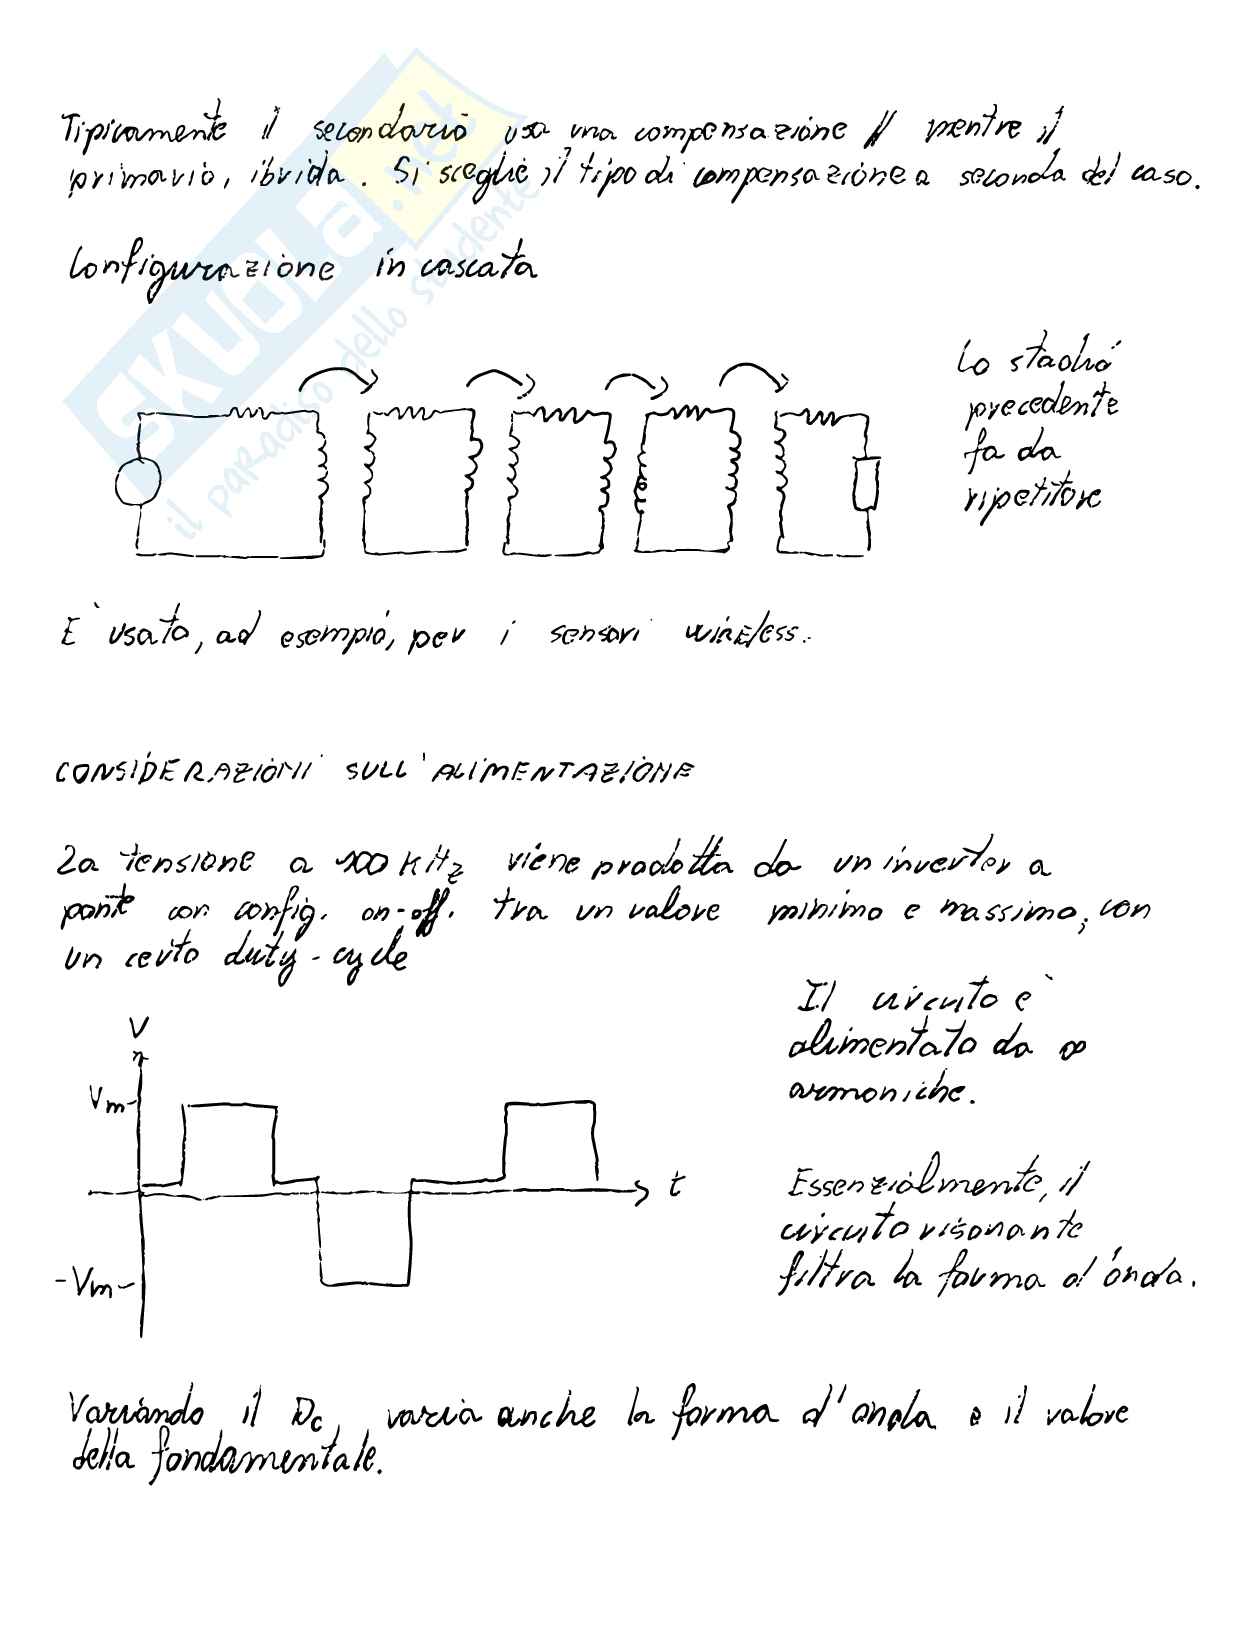 Tipicamente il secondario usa una compensazione // mentre il
primario, ibrida. Si sceglie il tipo di compensazione a seconda del caso.
Configurazione in cascata
Lo stadio
precedente
fa da
ripetitore
E` usato, ad esempio, per i sensori wireless.
CONSIDERAZIONI SULL'ALIMENTAZIONE
La tensione a 100 kHz viene prodotta da un inverter a
ponte con config. on-off. tra un valore minimo e massimo, con
un certo duty-cycle
Il circuito e`
alimentato da ∞
armoniche.
V
Vm
t
-Vm
Essenzialmente, il
circuito risonante
filtra la forma d'onda.
Variando il Dc, varia anche la forma d'onda e il valore
della fondamentale.
SKUOLA.net
il paradiso dello studente